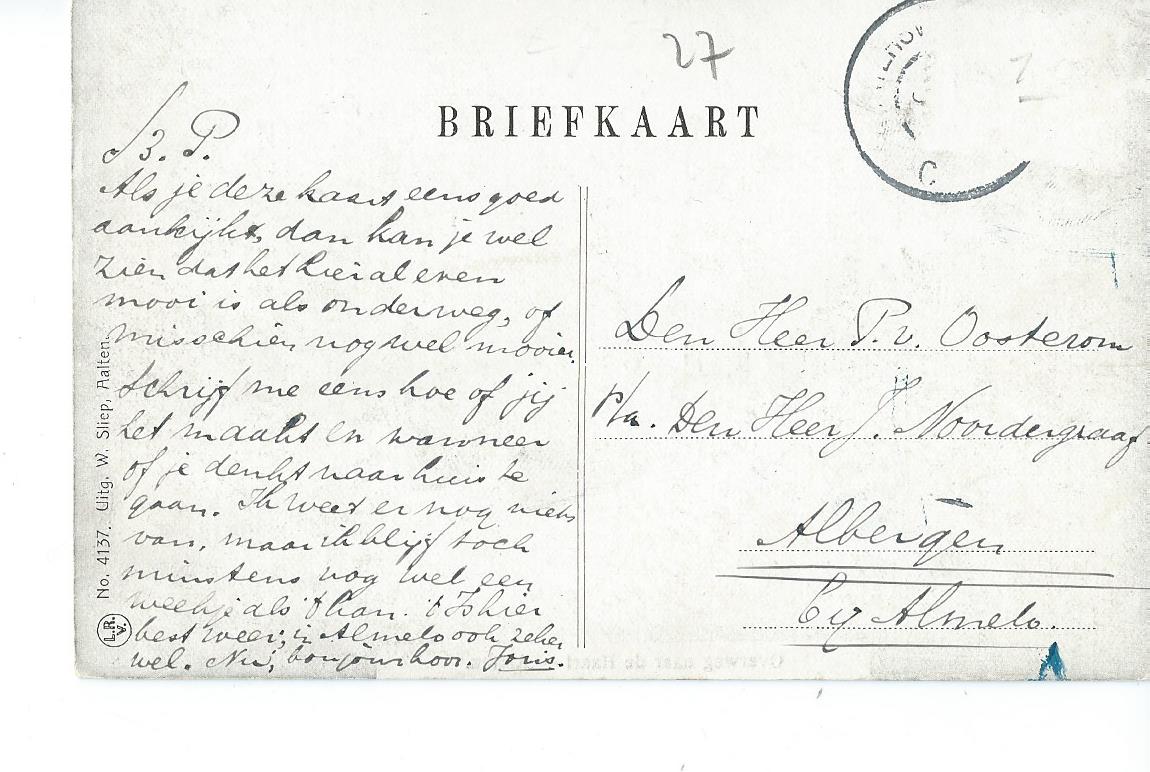 27
BRIEFKAART
B. P.
Als je deze kaart eens goed
aankijkt, dan kan je wel
zien dat het hier al even
mooi is als onderweg, of
misschien nog wel mooier.
Schrijf me eens hoe of jij
het maakt en wanneer
of je denkt naar huis te
gaan. Ik weet er nog niets
van, maar ik blijf toch
minstens nog wel een
weekje als 't kan. 't Is hier
best weer, in Almelo ook zeker
wel. Nu, bonjour hoor. Joris.
No. 4137. Uitg. W. Sliep, Aalten.
L.R.
v.
C
1
Den Heer P. v. Oosterom
p/a. Den Heer J. Noordergraaf
Albergen
bij Almelo.